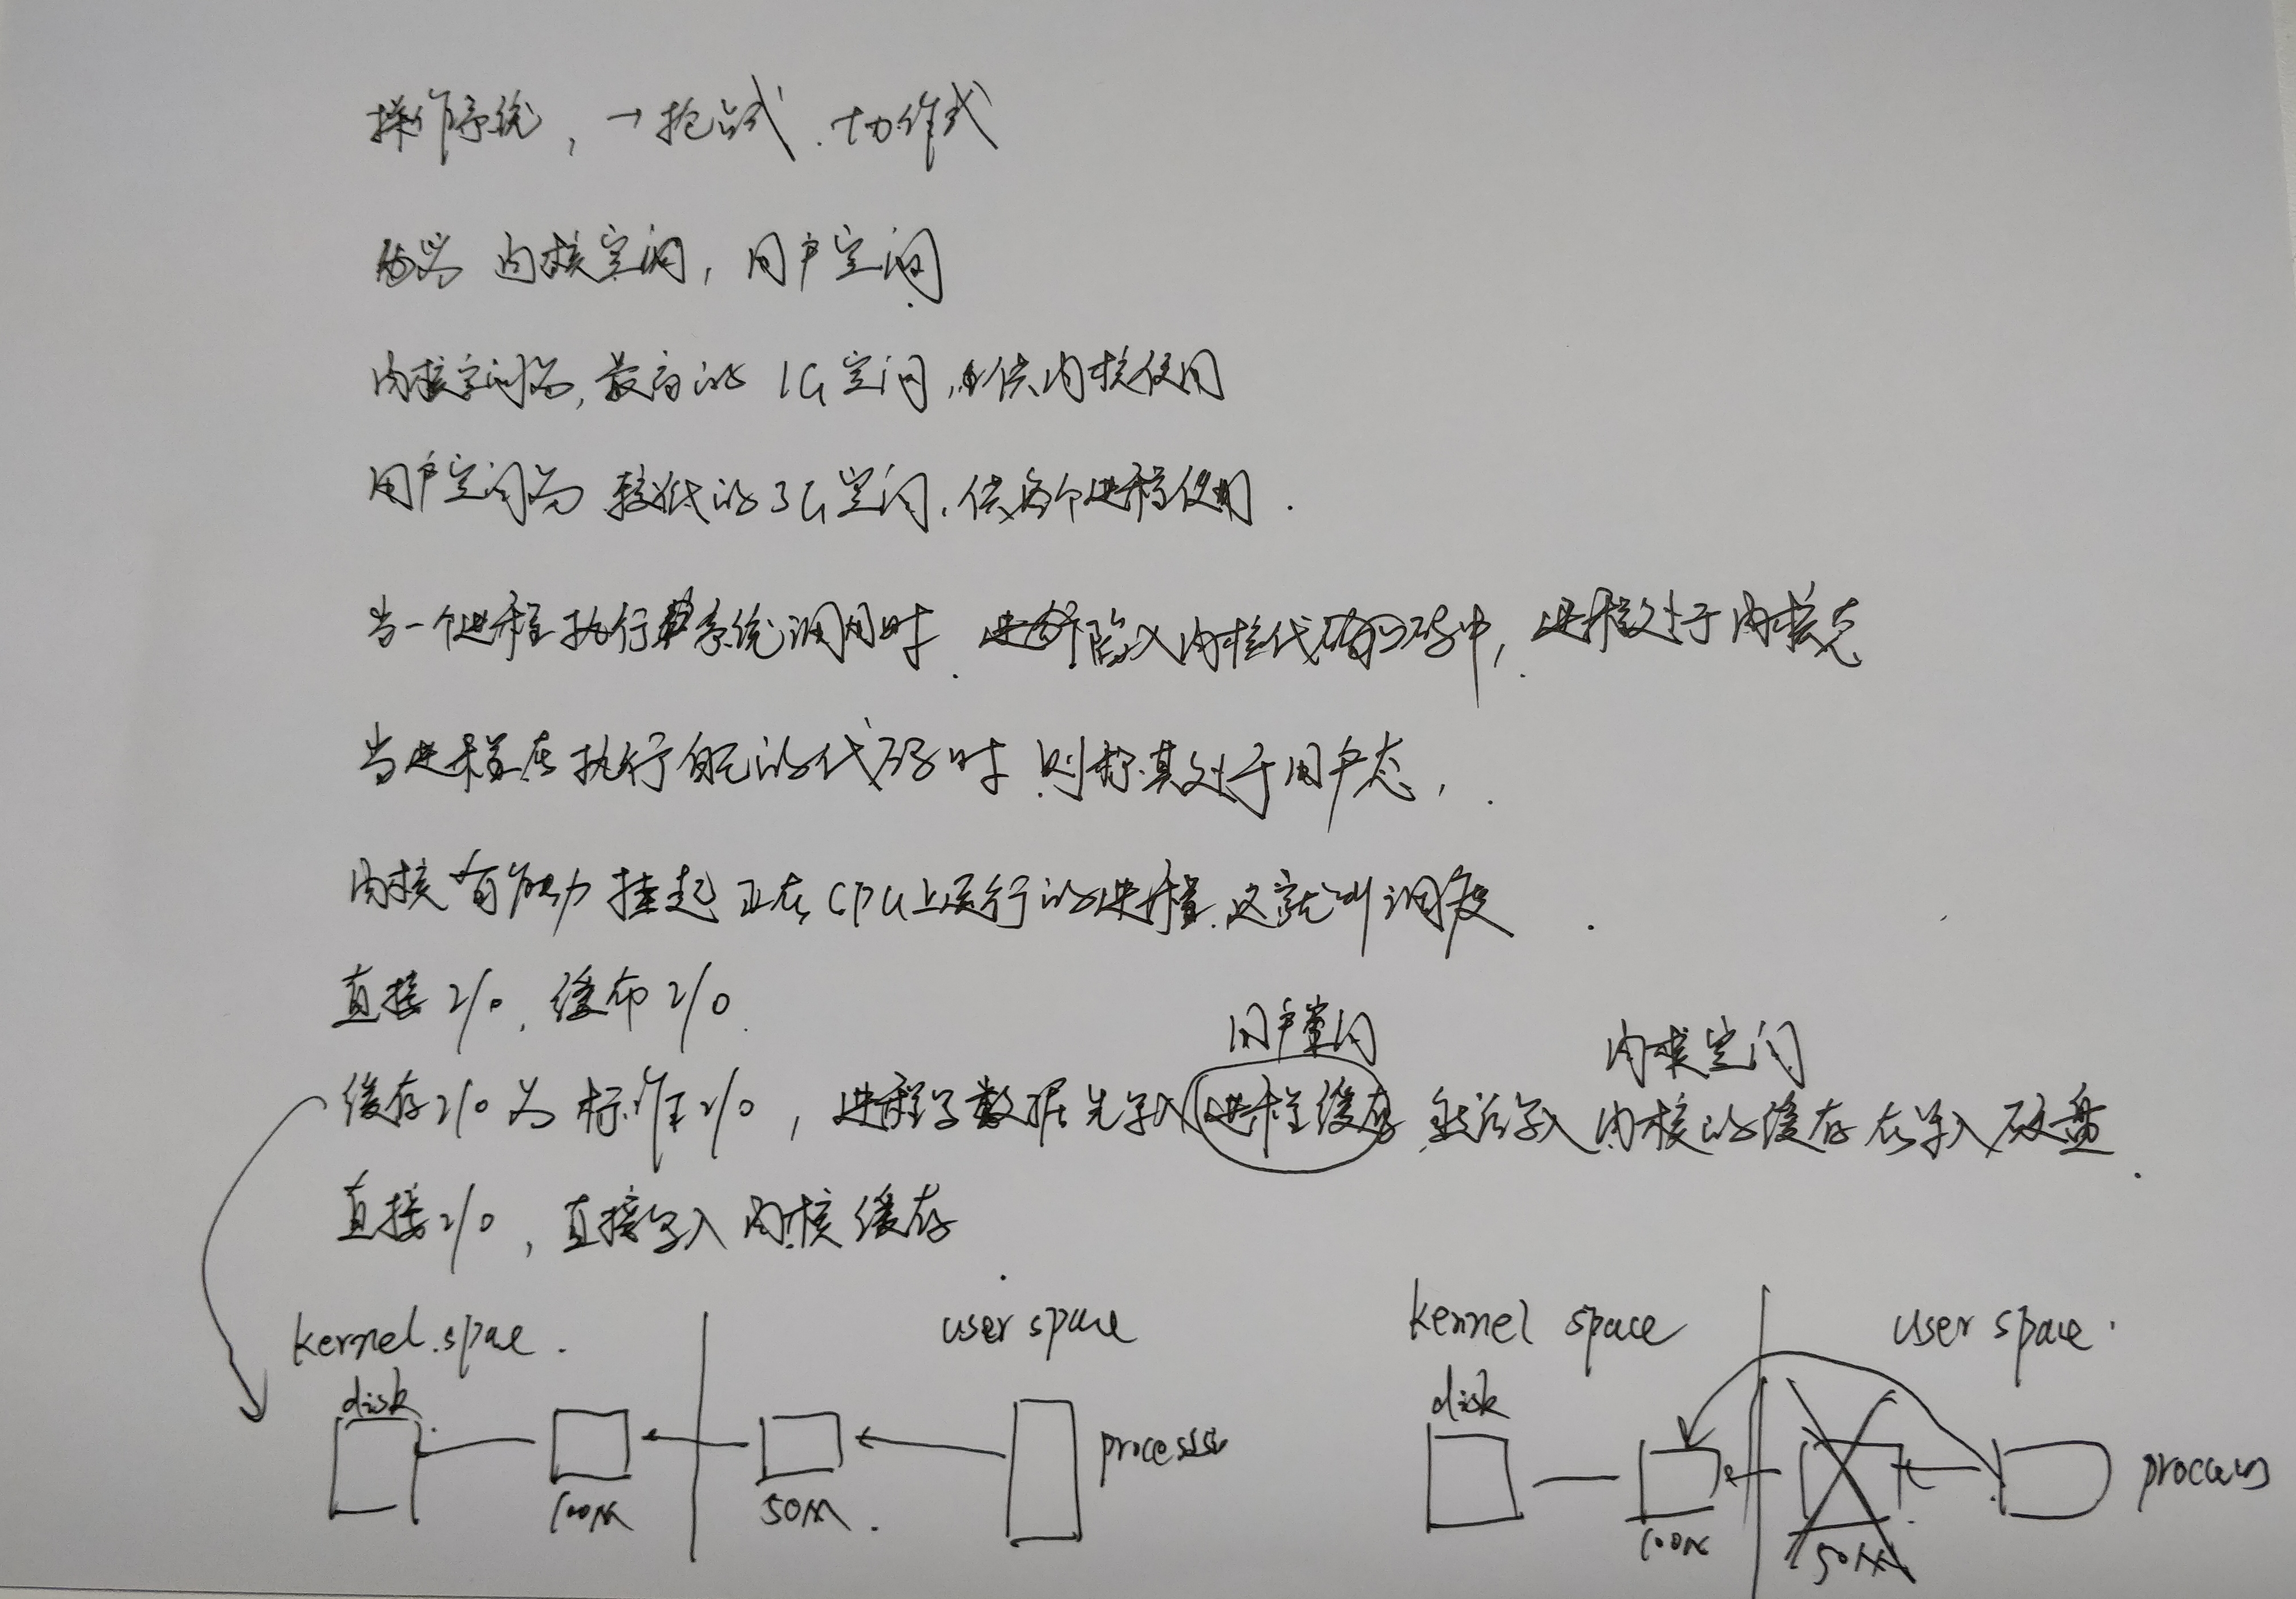 操作系统，→抢占式、协作式
分为 内核空间，用户空间
内核空间为，最高的 1G空间，供内核使用
用户空间为 较低的3G空间，供各个进程使用.
当一个进程执行系统调用时，进程陷入内核代码中，进程处于内核态
当进程在执行自己的代码时 则称其处于用户态，
内核有能力 挂起 正在CPU上运行的进程，这就叫调度
直接I/O，缓存I/O
用户空间 内核空间
缓存I/O 为 标准I/O，进程写数据先写入进程缓存，然后写入 内核的缓存 在写入磁盘
直接I/O，直接写入 内核缓存
kernel space. user space kernel space user space
disk disk
process process
100M 50M. 100M 50M